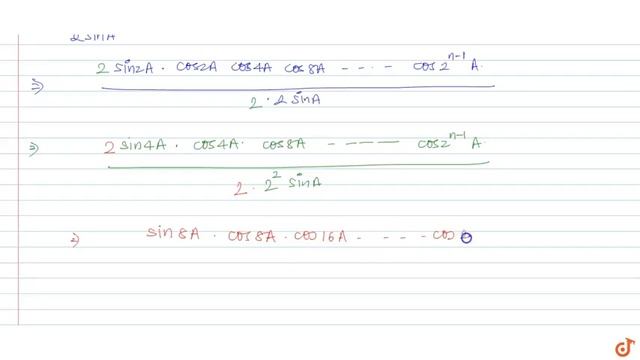 2 sinA
⇒ 2 sin2A · cos2A cos4A cos8A - - - - cos2^{n-1}A.
2 · 2 sinA
⇒ 2 sin4A · cos4A · cos8A - - - - cos2^{n-1}A.
2 · 2^2 sinA
⇒ sin8A · cos8A · cos16A - - - - cos